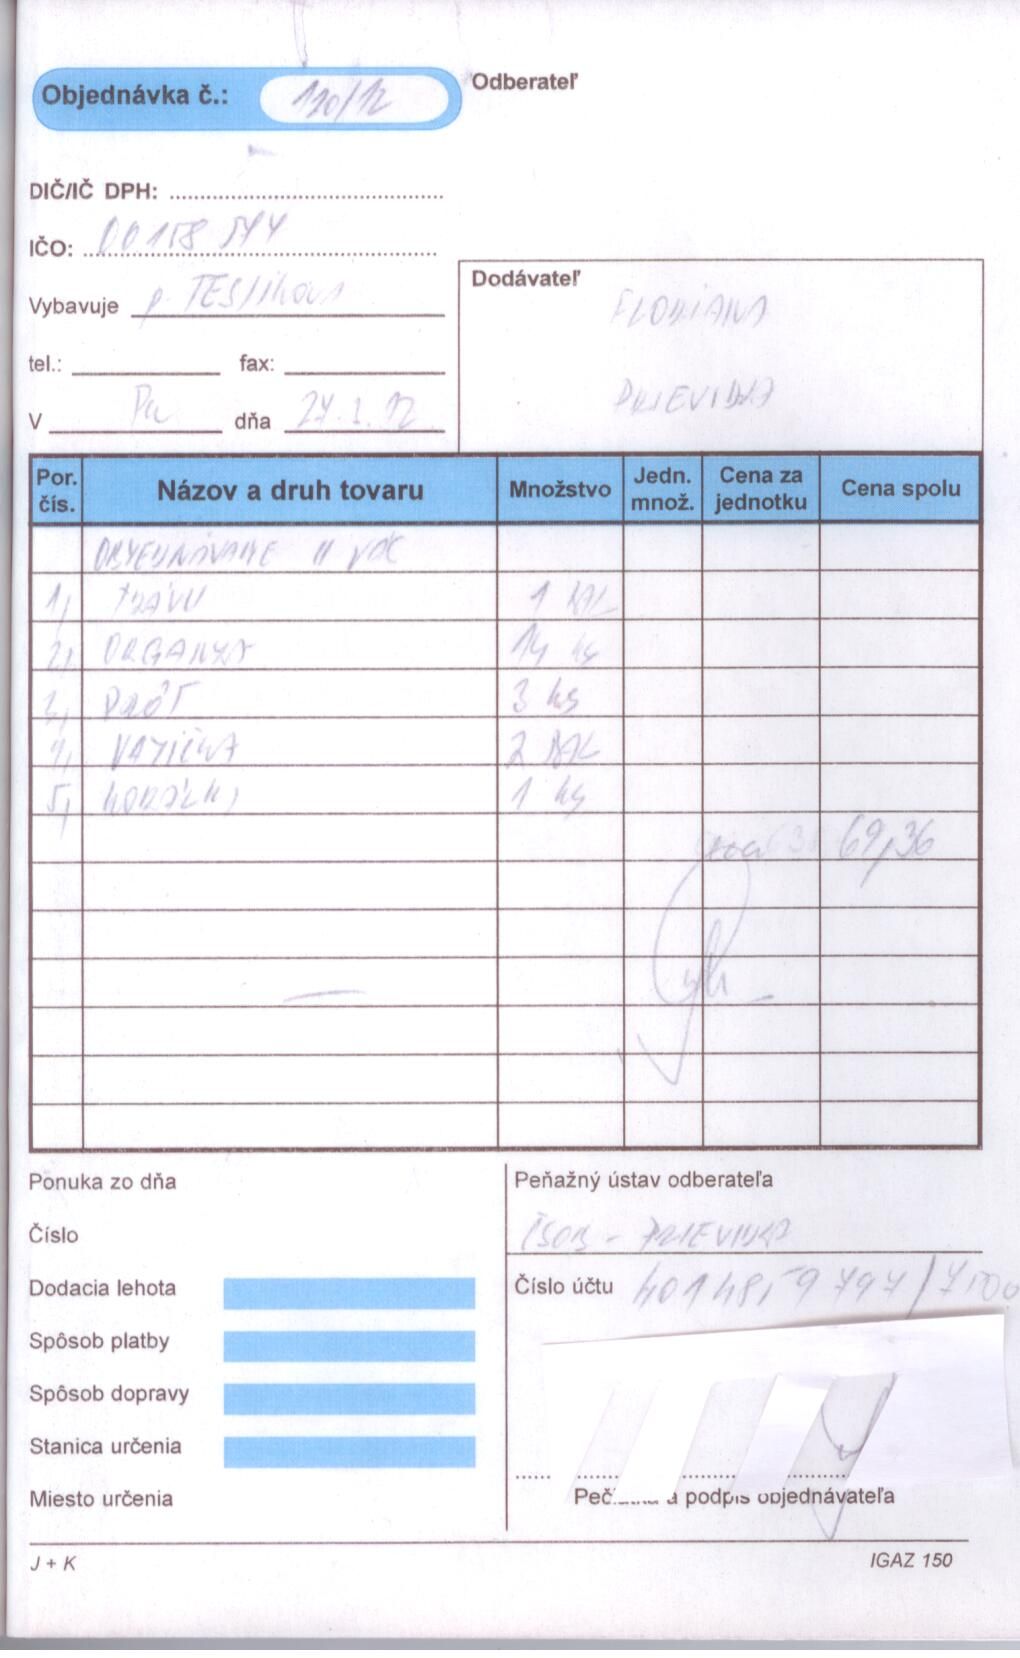 Objednávka č.: 120/12
Odberateľ
DIČ/IČ DPH:
IČO: 00158
Vybavuje p.
tel.: fax:
V dňa
Dodávateľ
FLORIANA
PRIEVIDZA
Por. čís. Názov a druh tovaru Množstvo Jedn. množ. Cena za jednotku Cena spolu
OBJEDNÁVAME U VÁS
1, TRÁVU 1 BAL
2, ORGANZA 14 kg
3, DRÔT 3 kg
4, 2 BAL
5, KORÁLKY 1 kg
69,36
Ponuka zo dňa
Číslo
Dodacia lehota
Spôsob platby
Spôsob dopravy
Stanica určenia
Miesto určenia
Peňažný ústav odberateľa
ČSOB - PRIEVIDZA
Číslo účtu
a podpis objednávateľa
J + K
IGAZ 150